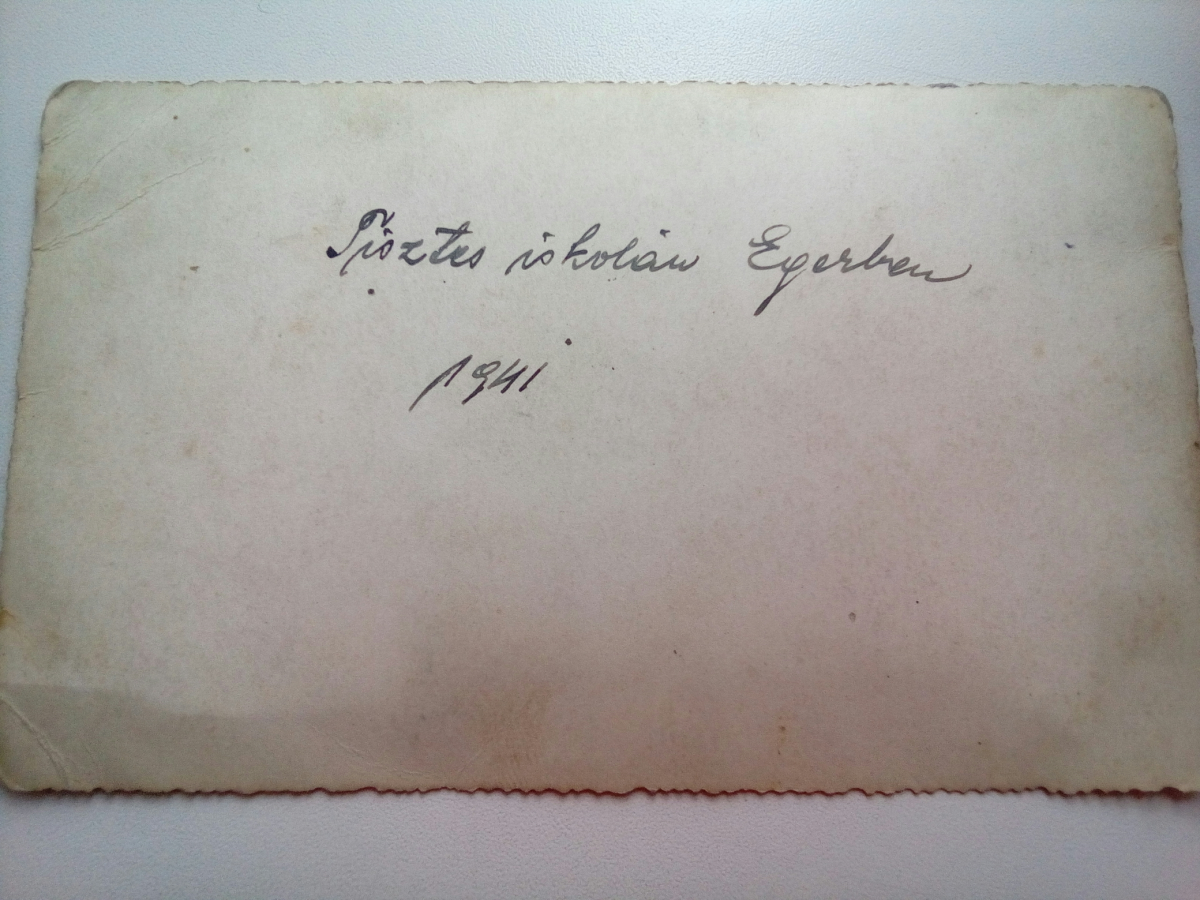 Tisztes iskolán Egerben
1941